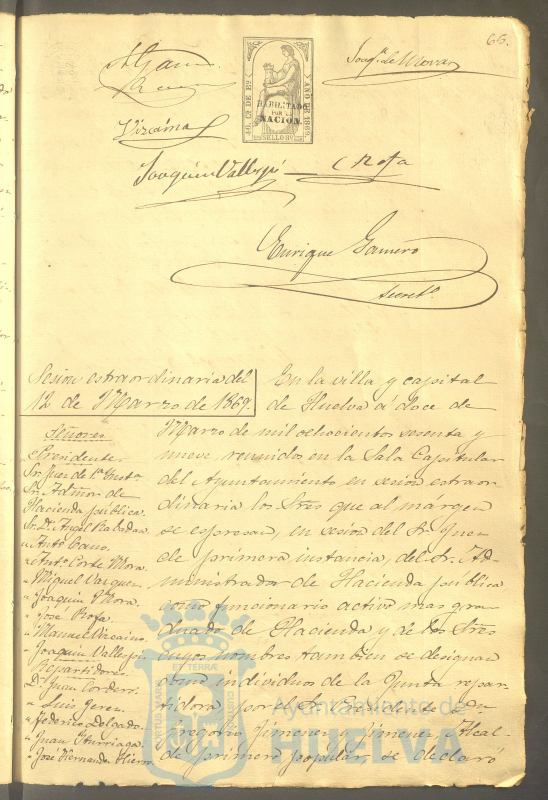 66.
Joaqn. de Mora
40. Cs. DE Eo.
AÑO DE 1869.
HABILITADO
POR LA
NACION.
SELLO 8º
Vizcaino
Joaquin Vallejo
Rofa
Enrique Gamero
Secreto.
Sesion estraordinaria del
12 de Marzo de 1869.
Señores
Presidente
Sr. Juez de 1ª Insta.
Sr. Admor. de
Hacienda publica.
Sr. D. Angel Rabadan
" Anto. Cano.
" Anto. Corte Mora.
" Miguel Vazquez
" Joaquin Mora.
" José Rofa.
" Manuel Vizcaino.
" Joaquin Vallejo.
Repartidores.
D. Juan Cordero.
" Luis Gerez.
" Federico Delgado.
" Juan Iturriaga.
" José Hernandez Hierro
En la villa y capital
de Huelva á doce de
Marzo de mil ochocientos sesenta y
nueve reunidos en la Sala Capitular
del Ayuntamiento en sesion estraor-
dinaria los Stres que al márgen
se espresan, en sesion del Sr. Juez
de primera instancia, del Sr. Ad-
ministrador de Hacienda publica
como funcionario activo mas gra-
duado de Hacienda y de los Stres
cuyos nombres tambien se designan
como individuos de la Junta repar-
tidora, por el Sr. Presidente Dn.
Gregorio Jimenez y Jimenez, Alcal-
de primero popular, se declaró
Ayuntamiento de
HUELVA